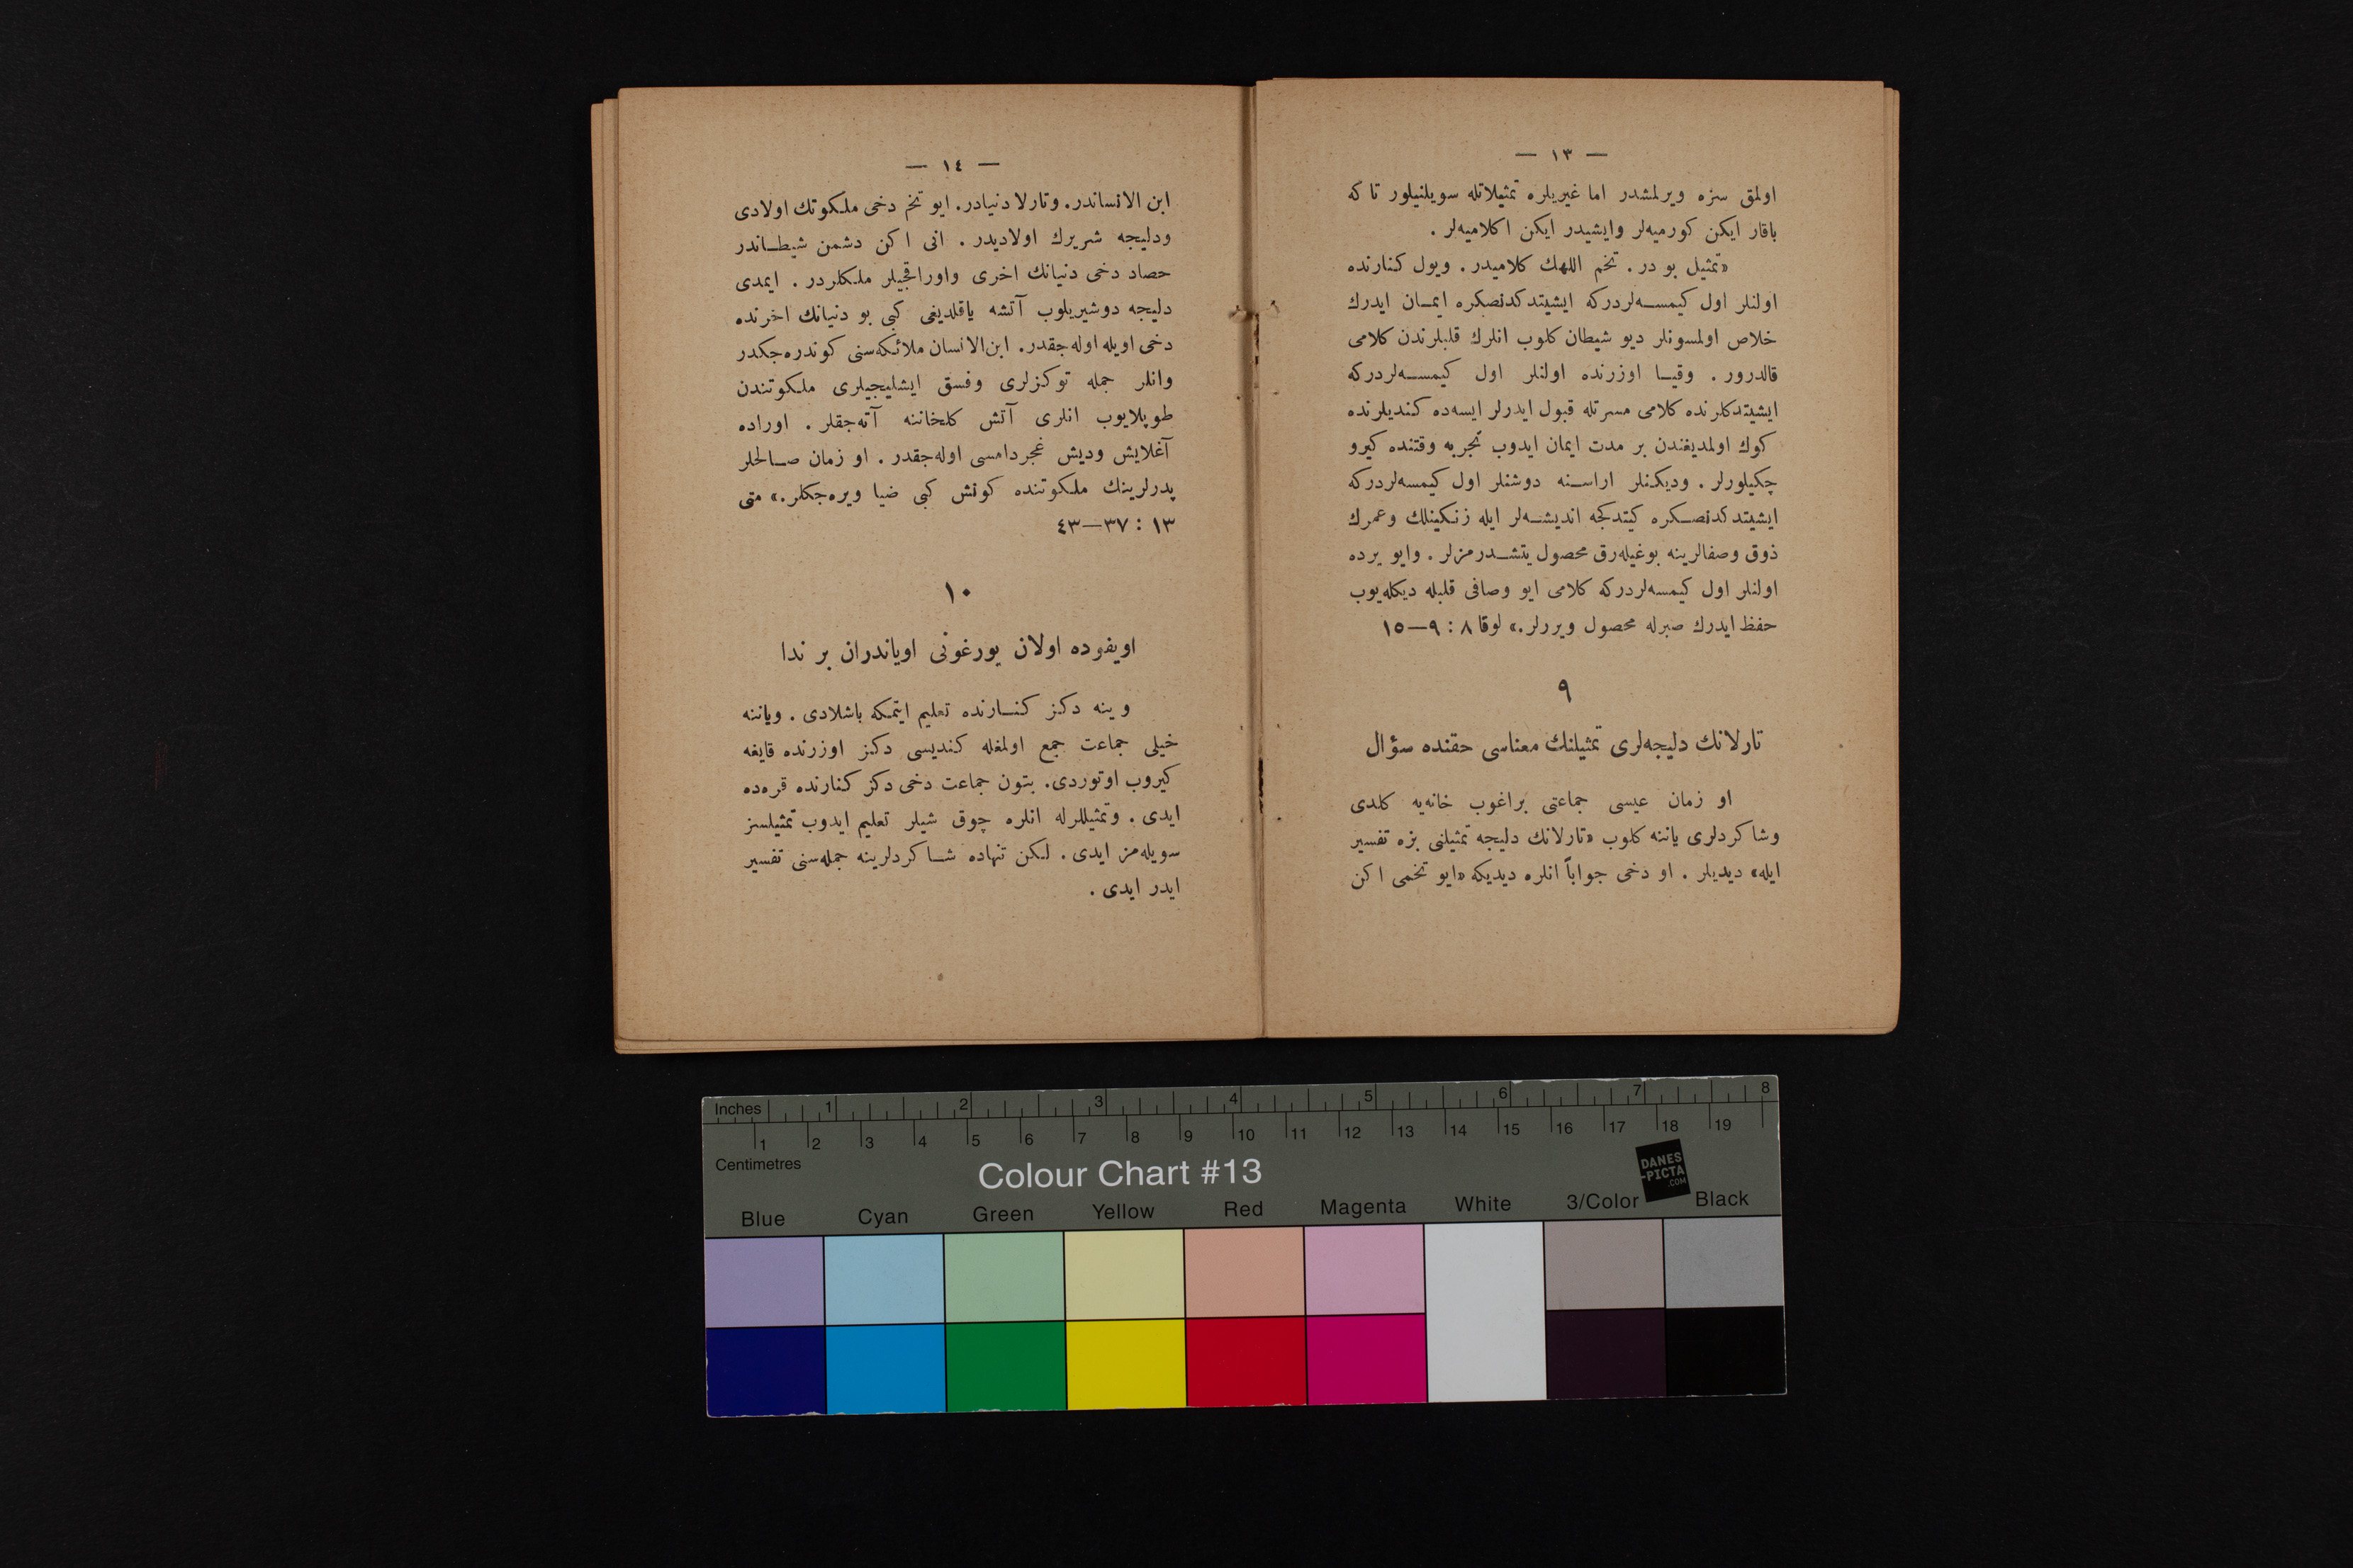 — ١٣ —
اولمق سزه ويرلمشدر اما غيريلره تمثيلاتله سويلنيلور تا كه
باقار ايكن كورميه‌لر وايشيدر ايكن اكلاميه‌لر .
«تمثيل بو در . تخم اللهك كلاميدر . ويول كنارنده
اولنلر اول كيمسه‌لردركه ايشيتدكدنصكره ايمان ايدرك
خلاص اولمسونلر ديو شيطان كلوب انلرك قلبلرندن كلامى
قالدرور . وقيا اوزرنده اولنلر اول كيمسه‌لردركه
ايشيتدكلرنده كلامى مسرتله قبول ايدرلر ايسه‌ده كنديلرنده
كوك اولمديغندن بر مدت ايمان ايدوب تجربه وقتنده كيرو
چكيلورلر . وديكنلر اراسنه دوشنلر اول كيمسه‌لردركه
ايشيتدكدنصكره كيتدكجه انديشه‌لر ايله زنكينلك وعمرك
ذوق وصفالرينه بوغيله‌رق محصول يتشدرمزلر . وايو يرده
اولنلر اول كيمسه‌لردركه كلامى ايو وصافى قلبله ديكله‌يوب
حفظ ايدرك صبرله محصول ويررلر.» لوقا ٨ : ٩—١٥
٩
تارلانك دليجه‌لرى تمثيلنك معناسى حقنده سؤال
او زمان عيسى جماعتى براغوب خانه‌يه كلدى
وشاكردلرى ياننه كلوب «تارلانك دليجه تمثيلنى بزه تفسير
ايله» ديديلر . او دخى جواباً انلره ديديكه «ايو تخمى اكن
— ١٤ —
ابن الانساندر. وتارلا دنيادر. ايو تخم دخى ملكوتك اولادى
ودليجه شريرك اولاديدر . انى اكن دشمن شيطاندر
حصاد دخى دنيانك اخرى واوراقجيلر ملكلردر . ايمدى
دليجه دوشيريلوب آتشه ياقلديغى كبى بو دنيانك اخرنده
دخى اويله اوله‌جقدر. ابن‌الانسان ملائكه‌سنى كوندره‌جكدر
وانلر جمله توكزلرى وفسق ايشليجيلرى ملكوتندن
طوپلايوب انلرى آتش كلخاننه آته‌جقلر . اوراده
آغلايش وديش غجردامسى اوله‌جقدر . او زمان صالحلر
پدرلرينك ملكوتنده كونش كبى ضيا ويره‌جكلر.» متى
١٣ : ٣٧—٤٣
١٠
اويقوده اولان يورغونى اوياندران بر ندا
و ينه دكز كنارنده تعليم ايتمكه باشلادى . وياننه
خيلى جماعت جمع اولمغله كنديسى دكز اوزرنده قايغه
كيروب اوتوردى. بتون جماعت دخى دكز كنارنده قره‌ده
ايدى . وتمثيللرله انلره چوق شيلر تعليم ايدوب تمثيلسز
سويله‌مز ايدى . لكن تنهاده شاكردلرينه جمله‌سنى تفسير
ايدر ايدى .
Inches 1 2 3 4 5 6 7 8
1 2 3 4 5 6 7 8 9 10 11 12 13 14 15 16 17 18 19
Centimetres
Colour Chart #13
DANES
-PICTA
.COM
Blue Cyan Green Yellow Red Magenta White 3/Color Black